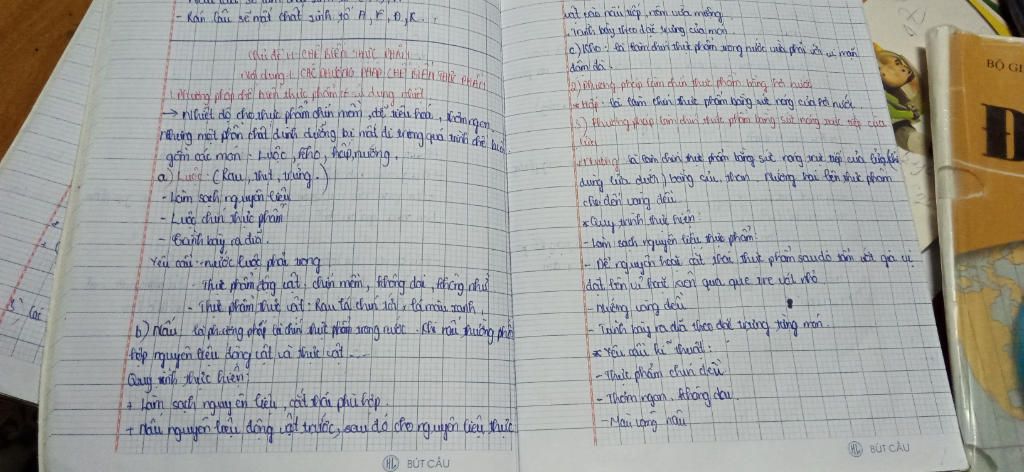 - Rán lâu sẽ mất chất sinh tố A, E, D, K.
Chủ đề 1: CHẾ BIẾN THỰC PHẨM
Nội dung 1: CÁC PHƯƠNG PHÁP CHẾ BIẾN THỰC PHẨM
1. Phương pháp chế biến thực phẩm có sử dụng nhiệt
→ Nhiệt độ cho thực phẩm chín mềm, dễ tiêu hoá, thơm ngon
nhưng một phần chất dinh dưỡng bị mất đi trong quá trình chế biến
gồm các món: Luộc, kho, hấp, nướng.
a) Luộc (Rau, thịt, trứng.)
- Làm sạch nguyên liệu
- Luộc chín thực phẩm
- Trình bày ra đĩa.
Yêu cầu: nước luộc phải trong
- Thực phẩm động vật: chín mềm, không dai, không nhừ
- Thực phẩm thực vật: Rau lá chín tới, có màu xanh.
b) Nấu: là phương pháp làm chín thực phẩm trong nước. Khi nấu, thường phối
hợp nguyên liệu động vật và thực vật ...
Quy trình thực hiện:
+ Làm sạch nguyên liệu, cắt thái phù hợp.
+ Nấu nguyên liệu động vật trước, sau đó cho nguyên liệu thực
vật vào nấu tiếp, nêm vừa miệng.
- Trình bày theo đặc trưng của món.
c) Kho: là làm chín thực phẩm trong nước vừa phải với vị mặn
đậm đà.
2) Phương pháp làm chín thực phẩm bằng hơi nước
* Hấp: là làm chín thực phẩm bằng sức nóng của hơi nước.
3) Phương pháp làm chín thực phẩm bằng sức nóng trực tiếp của
lửa
* Nướng là làm chín thực phẩm bằng sức nóng trực tiếp của lửa (chỉ
dùng lửa dưới) bằng củi, than. Nướng hai bên thực phẩm
cho đến vàng đều
* Quy trình thực hiện:
- Làm sạch nguyên liệu thực phẩm:
- Để nguyên hoặc cắt thái thực phẩm sau đó tẩm ướt gia vị
đặt lên vỉ hoặc xiên qua que tre vót nhỏ
- nướng vàng đều
- Trình bày ra đĩa theo đặc trưng từng món.
* Yêu cầu kĩ thuật:
- Thực phẩm chín đều
- Thơm ngon, không dai.
- Màu vàng nâu
HL BÚT CÂU
HL BÚT CÂU
BỘ GI
Đ